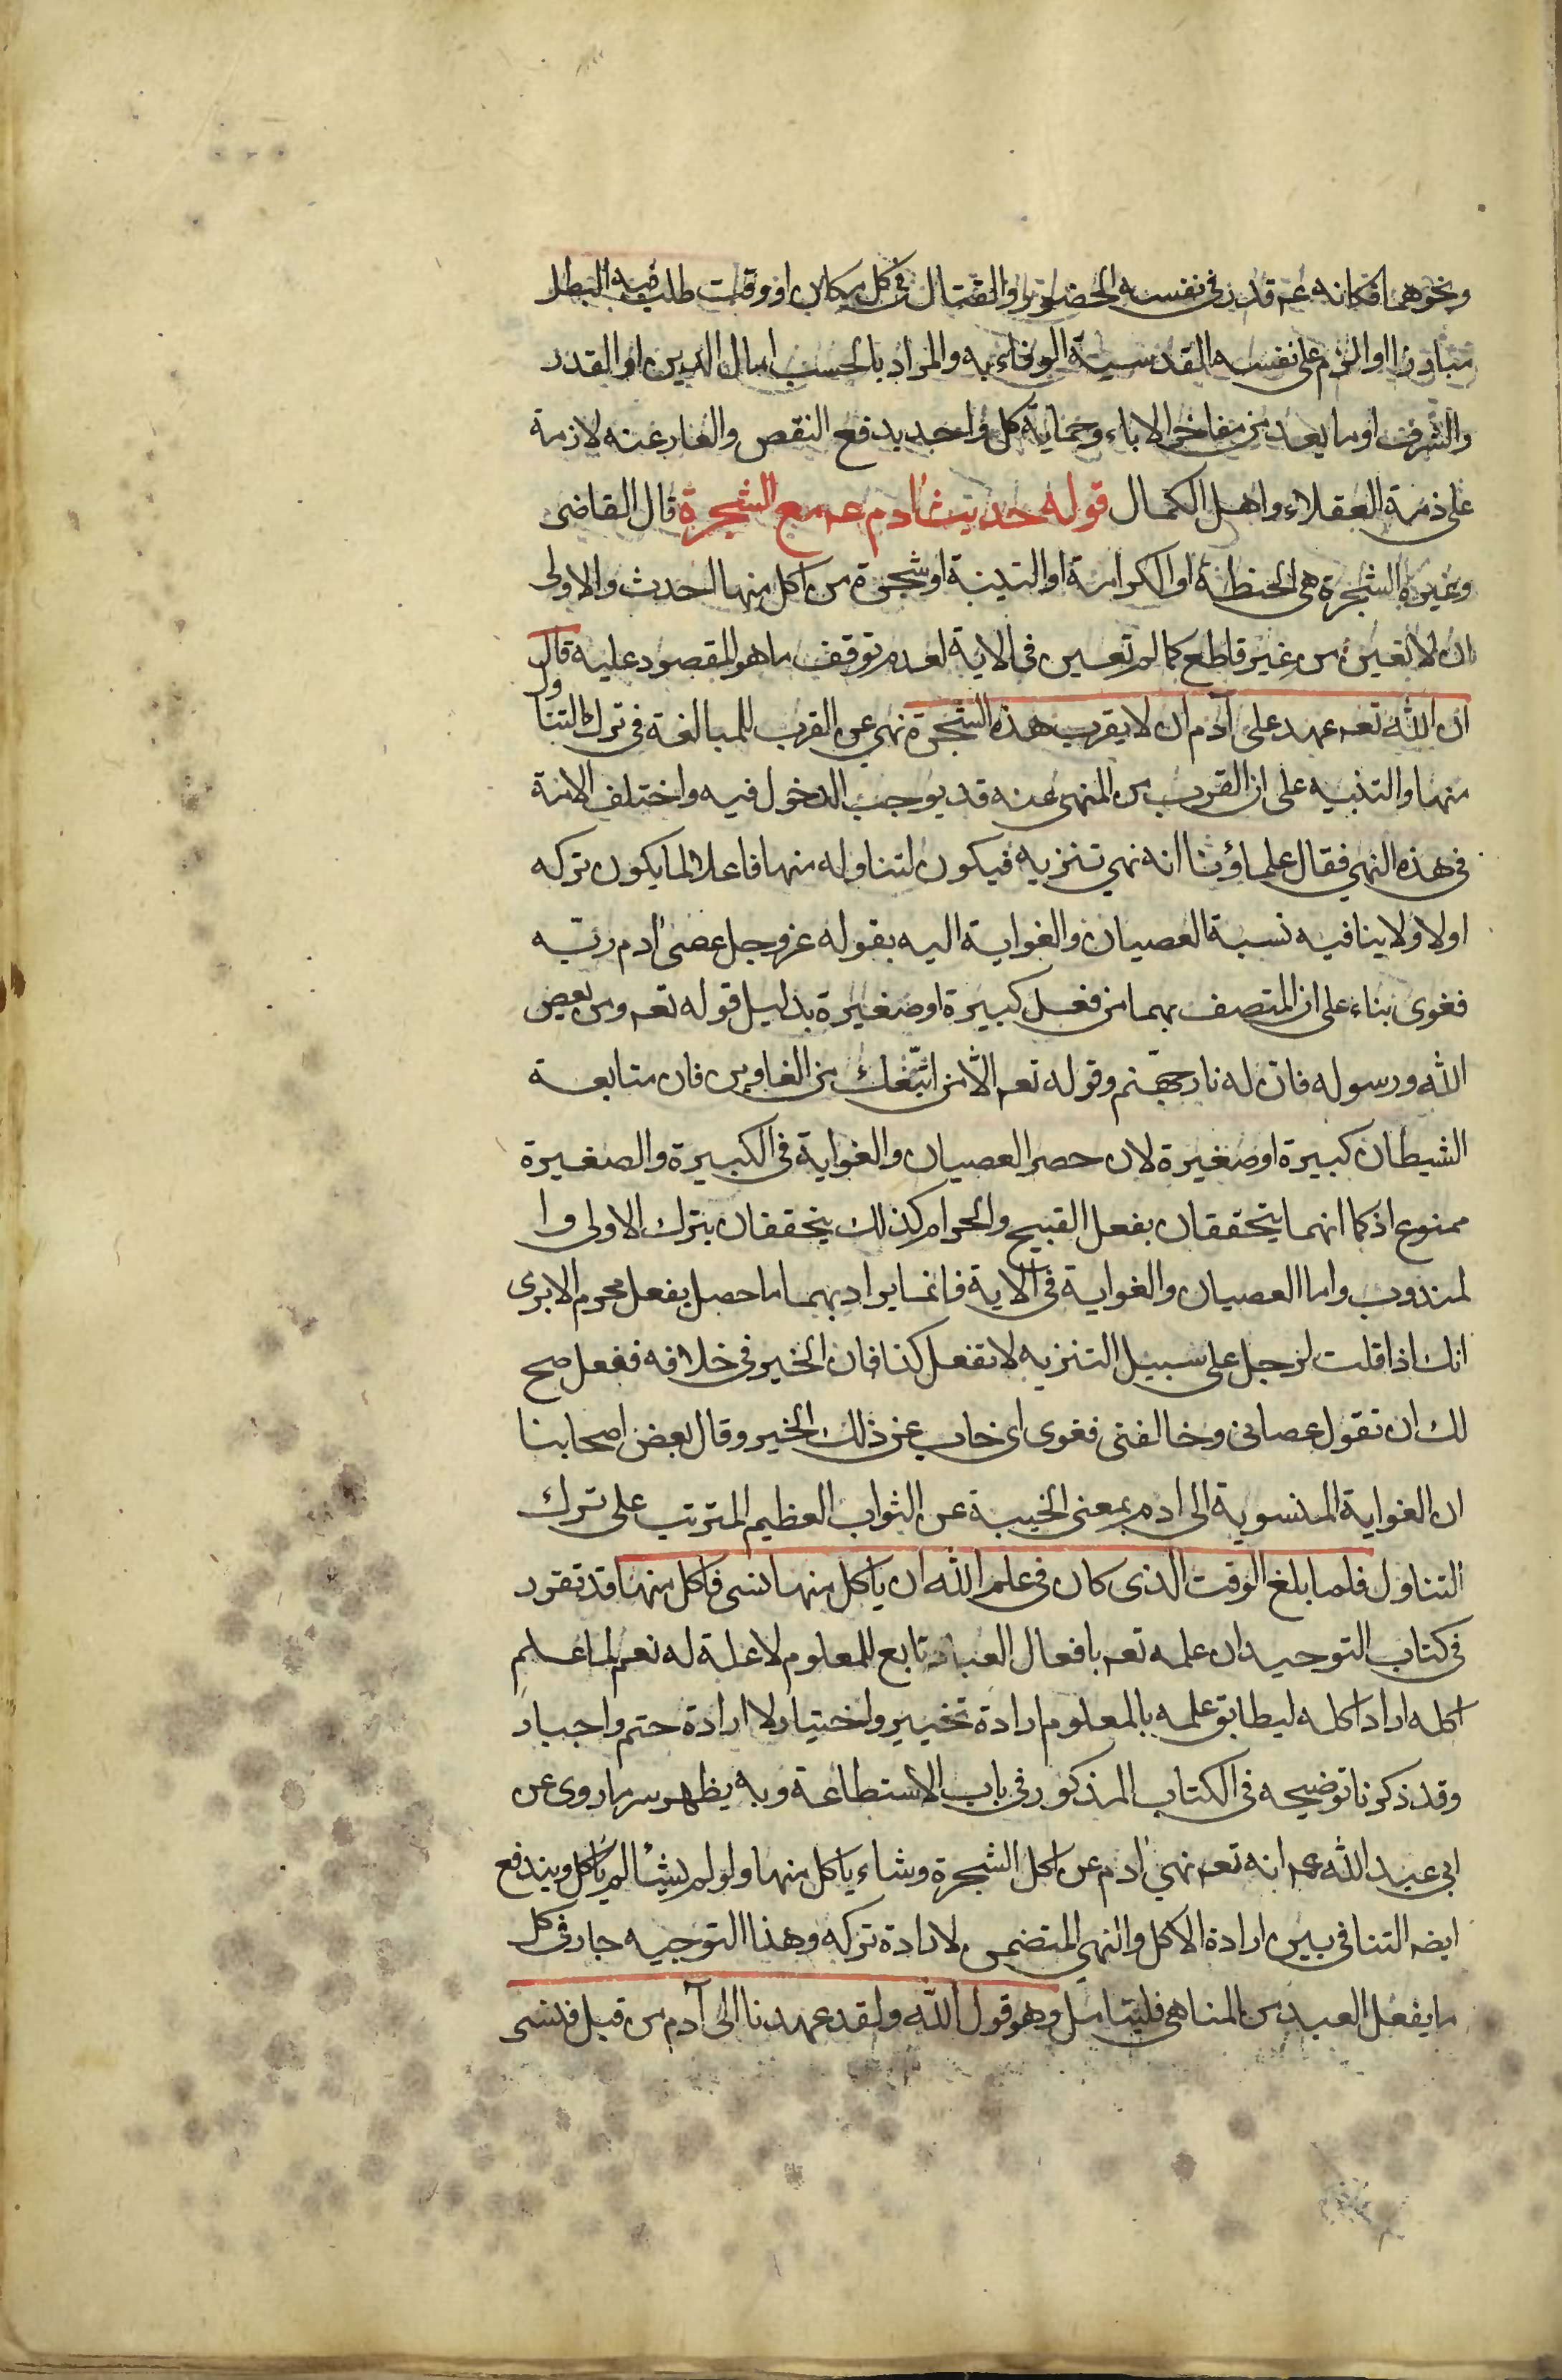 ونحوهما فكانه عم قدر في نفسه الحضور والقتال في كل مكان او وقت طلب فيه البطل
مبارزا او الزم على نفسه القدسية الوفاء به والمراد بالحسب اما الدين او القدر
والشرف او ما يعد من مفاخر الاباء وحماية كل واحد بدفع النقص والعار عنه لازمة
على ذمة العقلاء واهل الكمال قوله حديث ادم عم مع الشجرة قال القاضى
وغيره الشجرة هى الحنظة او الكرامة او التينة او شجرة من اكل منها احدث والاولى
ان لا تعين من غير قاطع كما لم تعين فى الاية لعدم توقف ما هو المقصود عليه قال
ان الله تعم عهد على آدم ان لا يقرب هذه الشجرة نهى عن القرب للمبالغة فى ترك التناول
منها والتنبيه على ان القرب من المنهى عنه قد يوجب الدخول فيه واختلف الامة
فى هذه النهى فقال علماؤنا انه نهى تنزيه فيكون لتناوله منها فاعلا لما يكون تركه
اولا ولا ينافيه نسبة العصيان والغواية اليه بقوله عز وجل عصى ادم ربه
فغوى بناء على ان المتصف بهما من فعل كبيرة او صغيرة بدليل قوله تعم ومن يعص
الله ورسوله فان له نار جهنم وقوله تعم الا من اتبعك من الغاوين فان متابعة
الشيطان كبيرة او صغيرة لان حصر العصيان والغواية فى الكبيرة والصغيرة
ممنوع اذ كما انهما يتحققان بفعل القبيح والحرام كذلك يتحققان بترك الاولى وا
لمندوب واما العصيان والغواية فى الاية فانما يراد بهما ما حصل بفعل محرم الا يرى
انك اذا قلت لرجل على سبيل التنزيه لا تفعل كذا فان الخير فى خلافه ففعل صح
لك ان تقول عصانى وخالفنى فغوى اى خاب عن ذلك الخير وقال بعض اصحابنا
ان الغواية المنسوبة الى ادم بمعنى الخيبة عن الثواب العظيم المترتب على ترك
التناول فلما بلغ الوقت الذى كان فى علم الله ان ياكل منها نسى فاكل منها قد تقرر
فى كتاب التوحيد ان علمه تعم بافعال العباد تابع للمعلوم لا علة له نعم لما علم
اكله اراد اكله ليطابق علمه بالمعلوم ارادة تخيير واختيار لا ارادة حتم واجبار
وقد ذكرنا توضيحه فى الكتاب المذكور فى باب الاستطاعة وبه يظهر سر ما روى عن
ابى عبد الله عم انه تعم نهى ادم عن اكل الشجرة وشاء ياكل منها ولو لم يشأ لم ياكل ويندفع
ايضه التنافى بين ارادة الاكل والنهى المتضمن لارادة تركه وهذا التوجيه جار فى كل
ما يفعل العبد من المناهى فليتامل وهو قول الله ولقد عهدنا الى آدم من قبل فنسى